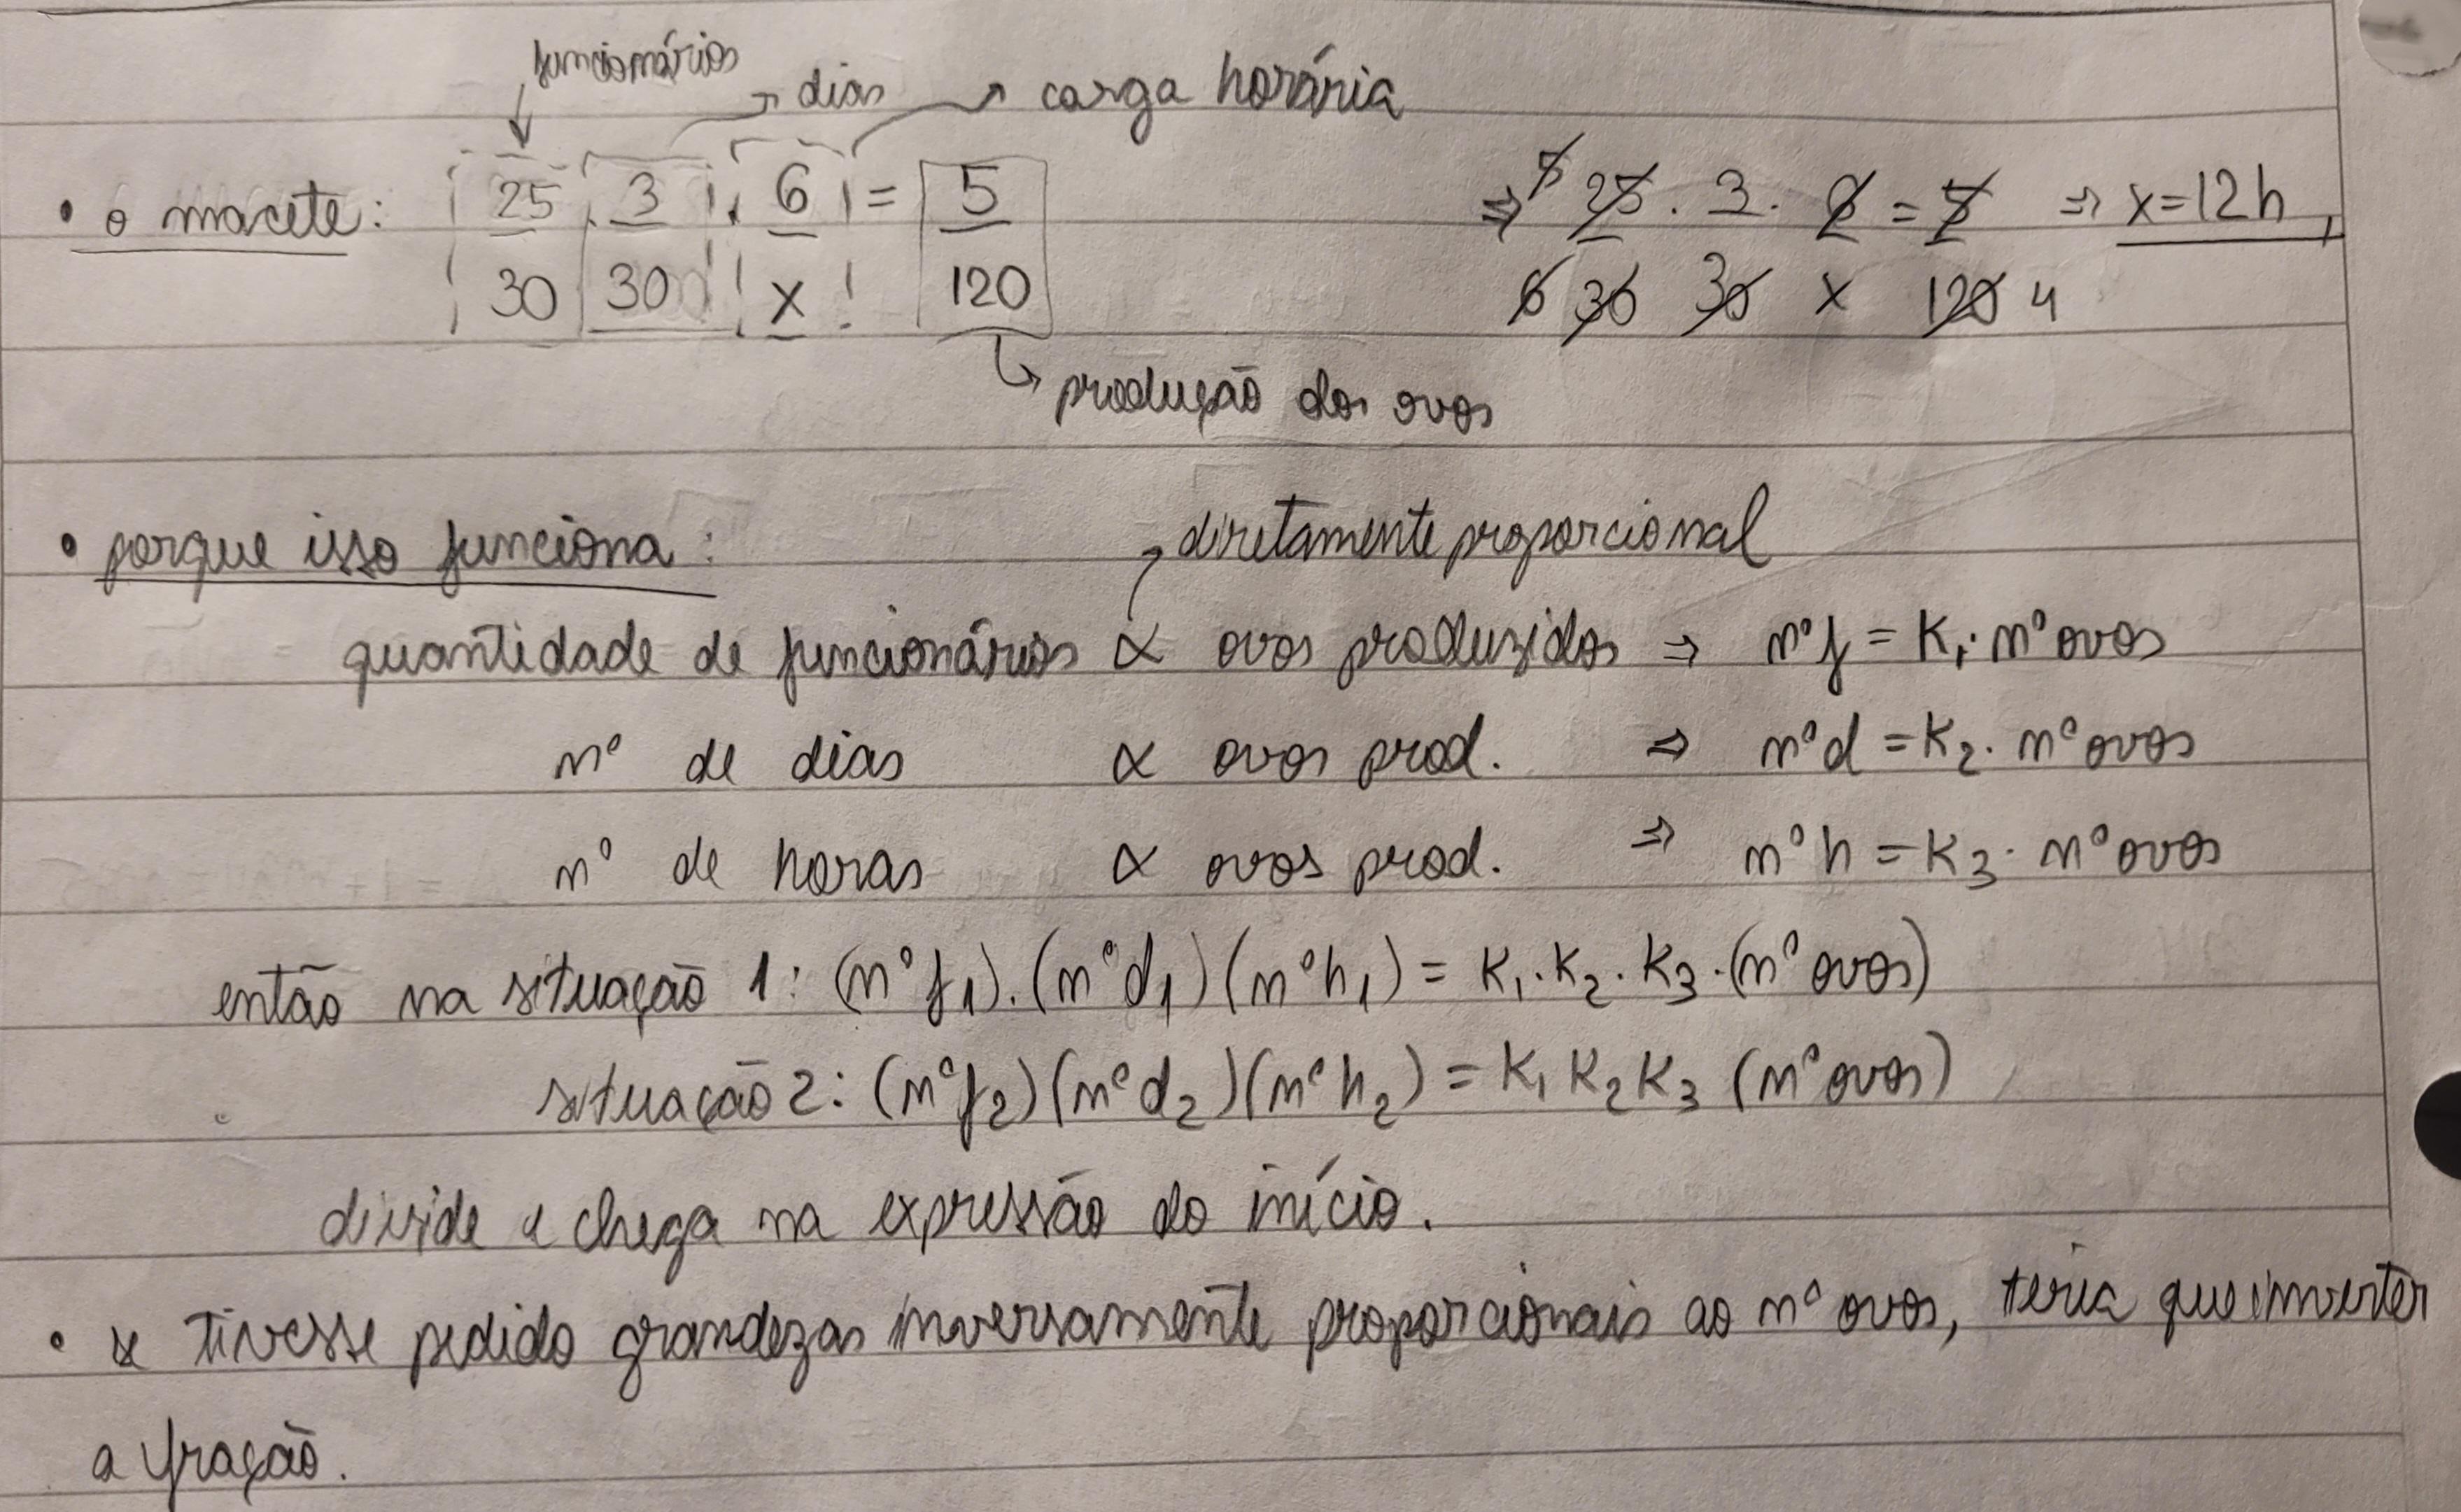 funcionários
dias
carga horária
• o macete: 25 . 3 . 6 = 5
30 30 x 120
⇒ 5 25 . 3 . 6 = 5 ⇒ x=12h
6 30 30 x 120 4
produção dos ovos
• porque isso funciona:
diretamente proporcional
quantidade de funcionários ∝ ovos produzidos ⇒ nº f = K₁ . nº ovos
nº de dias ∝ ovos prod. ⇒ nº d = K₂ . nº ovos
nº de horas ∝ ovos prod. ⇒ nº h = K₃ . nº ovos
então na situação 1: (nº f₁).(nº d₁)(nº h₁) = K₁.K₂.K₃.(nº ovos)
situação 2: (nº f₂)(nº d₂)(nº h₂) = K₁ K₂ K₃ (nº ovos)
divide e chega na expressão do início.
• se tivesse pedido grandezas inversamente proporcionais ao nº ovos, teria que inverter
a fração.